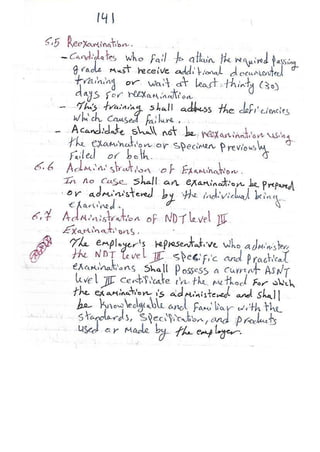 141
6.5 Reexamination.
- Candidates who fail to attain the required passing
grade must receive additional documented
training or wait at least thirty (30)
days for reexamination
- This training shall address the deficiencies
which caused failure.
- A candidate shall not be reexamination using
the examination or specimen previously
failed or both.
6.6 Administration of Examination.
In no case shall an examination be prepared
or administered by the individual being
examined.
6.7 Administration of NDT level III
Examinations.
The employer's representative who administer
the NDT level III specific and practical
examinations shall possess a current ASNT
level III certificate in the method for which
the examination is administered and shall
be knowledgiable and familiar with the
standards, specification, and products
used or made by the employer.